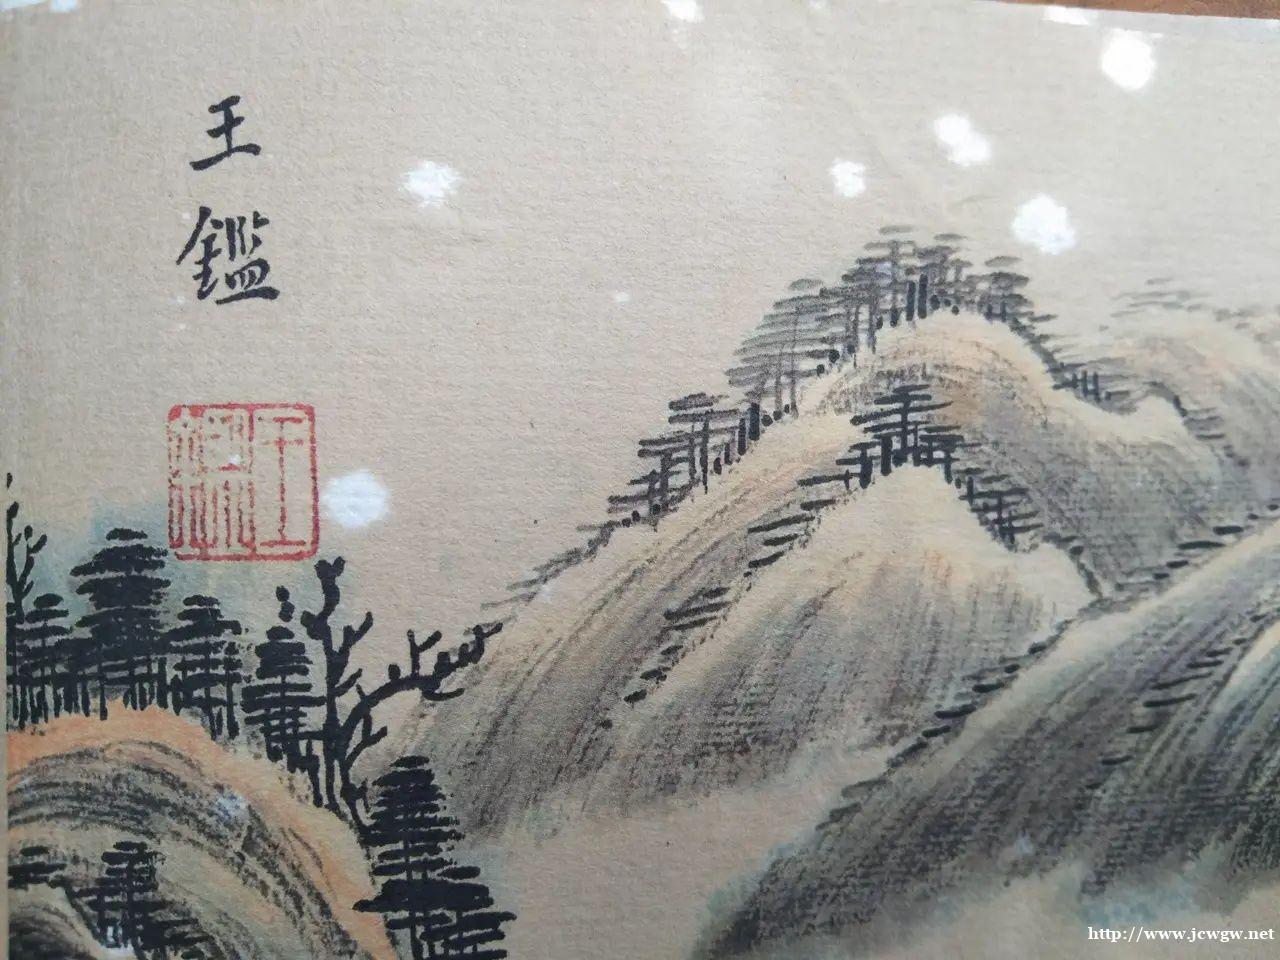 王鑑
王鑑
http://www.jcwgw.net